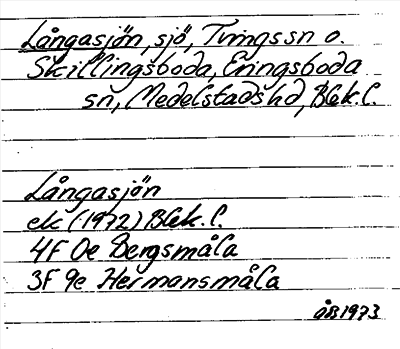 Långasjön, sjö, Tvingssn o.
Skillingsboda, Eringsboda
sn, Medelstadshd, Blek. l.
Långasjön
ek (1972) Blek. l.
4F 0e Bergsmåla
3F 9e Hermansmåla
ÅB 1973